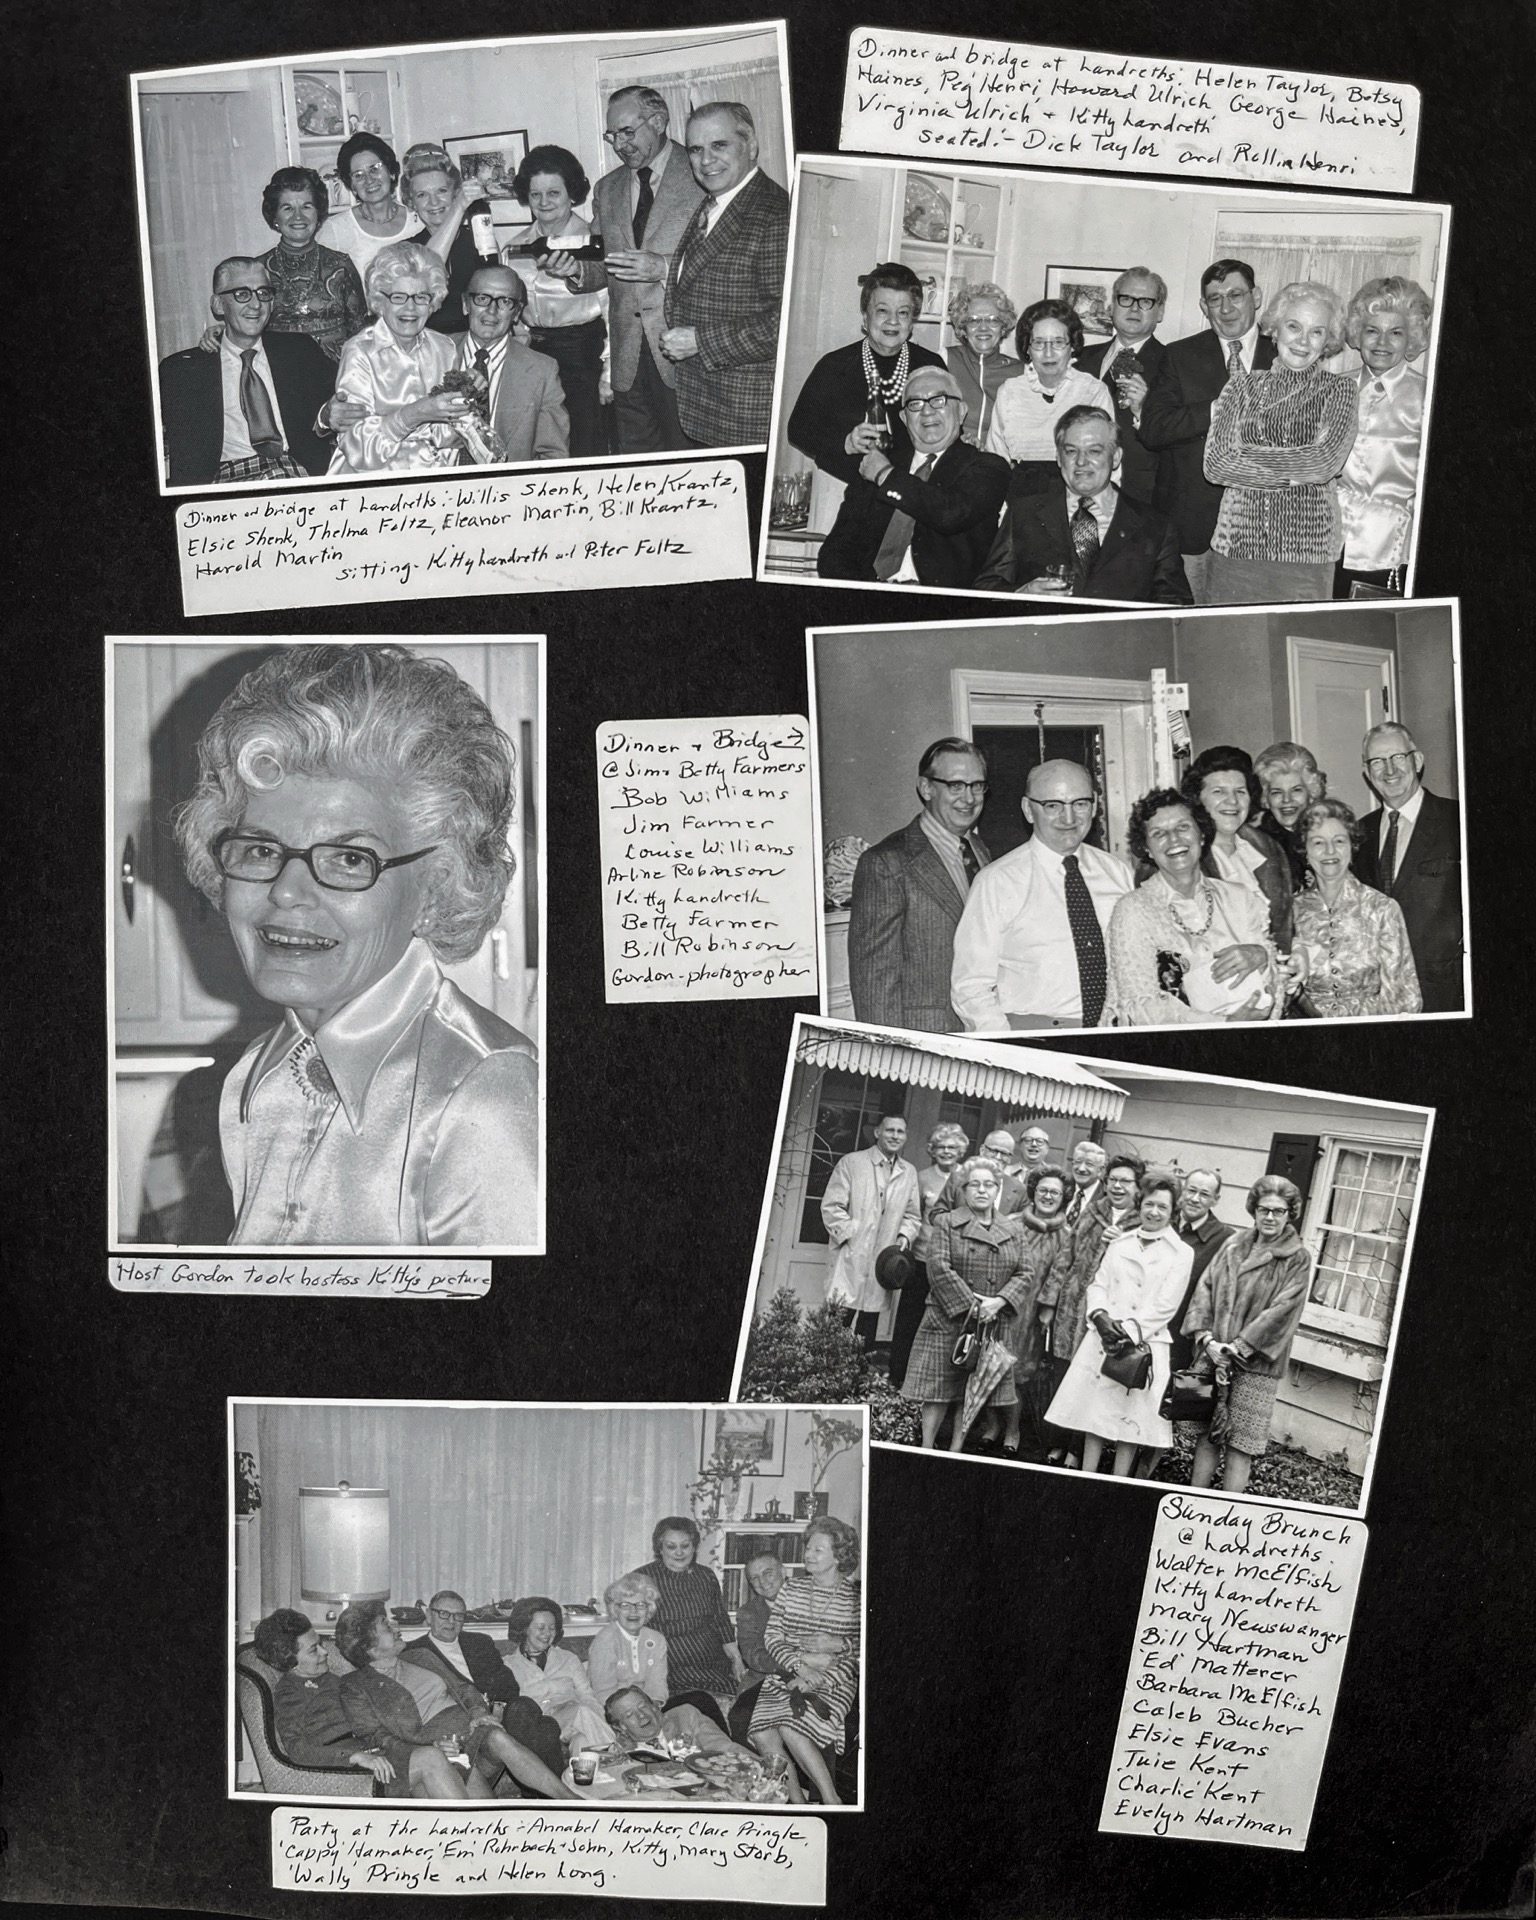 Dinner and bridge at Landreths: Helen Taylor, Betsy
Haines, Peg Henri, Howard Ulrich George Haines,
Virginia Ulrich + Kitty Landreth
seated:- Dick Taylor and Rollin Henri
Dinner and bridge at Landreths:- Willis Shenk, Helen Krantz,
Elsie Shenk, Thelma Foltz, Eleanor Martin, Bill Krantz,
Harold Martin
sitting - Kitty Landreth and Peter Foltz
Dinner + Bridge →
@ Jim + Betty Farmers
Bob Williams
Jim Farmer
Louise Williams
Arline Robinson
Kitty Landreth
Betty Farmer
Bill Robinson
Gordon - photographer
Host Gordon took hostess Kitty's picture
Sunday Brunch
@ Landreths.
Walter McElfish
Kitty Landreth
Mary Newswanger
Bill Hartman
'Ed' Matterer
Barbara McElfish
Caleb Bucher
Elsie Evans
Tuie Kent
'Charlie' Kent
Evelyn Hartman
Party at the Landreths:- Annabel Hamaker, Clare Pringle,
'Cappy' Hamaker, 'Em' Rohrbach + John, Kitty, Mary Storb,
'Wally' Pringle and Helen Long.